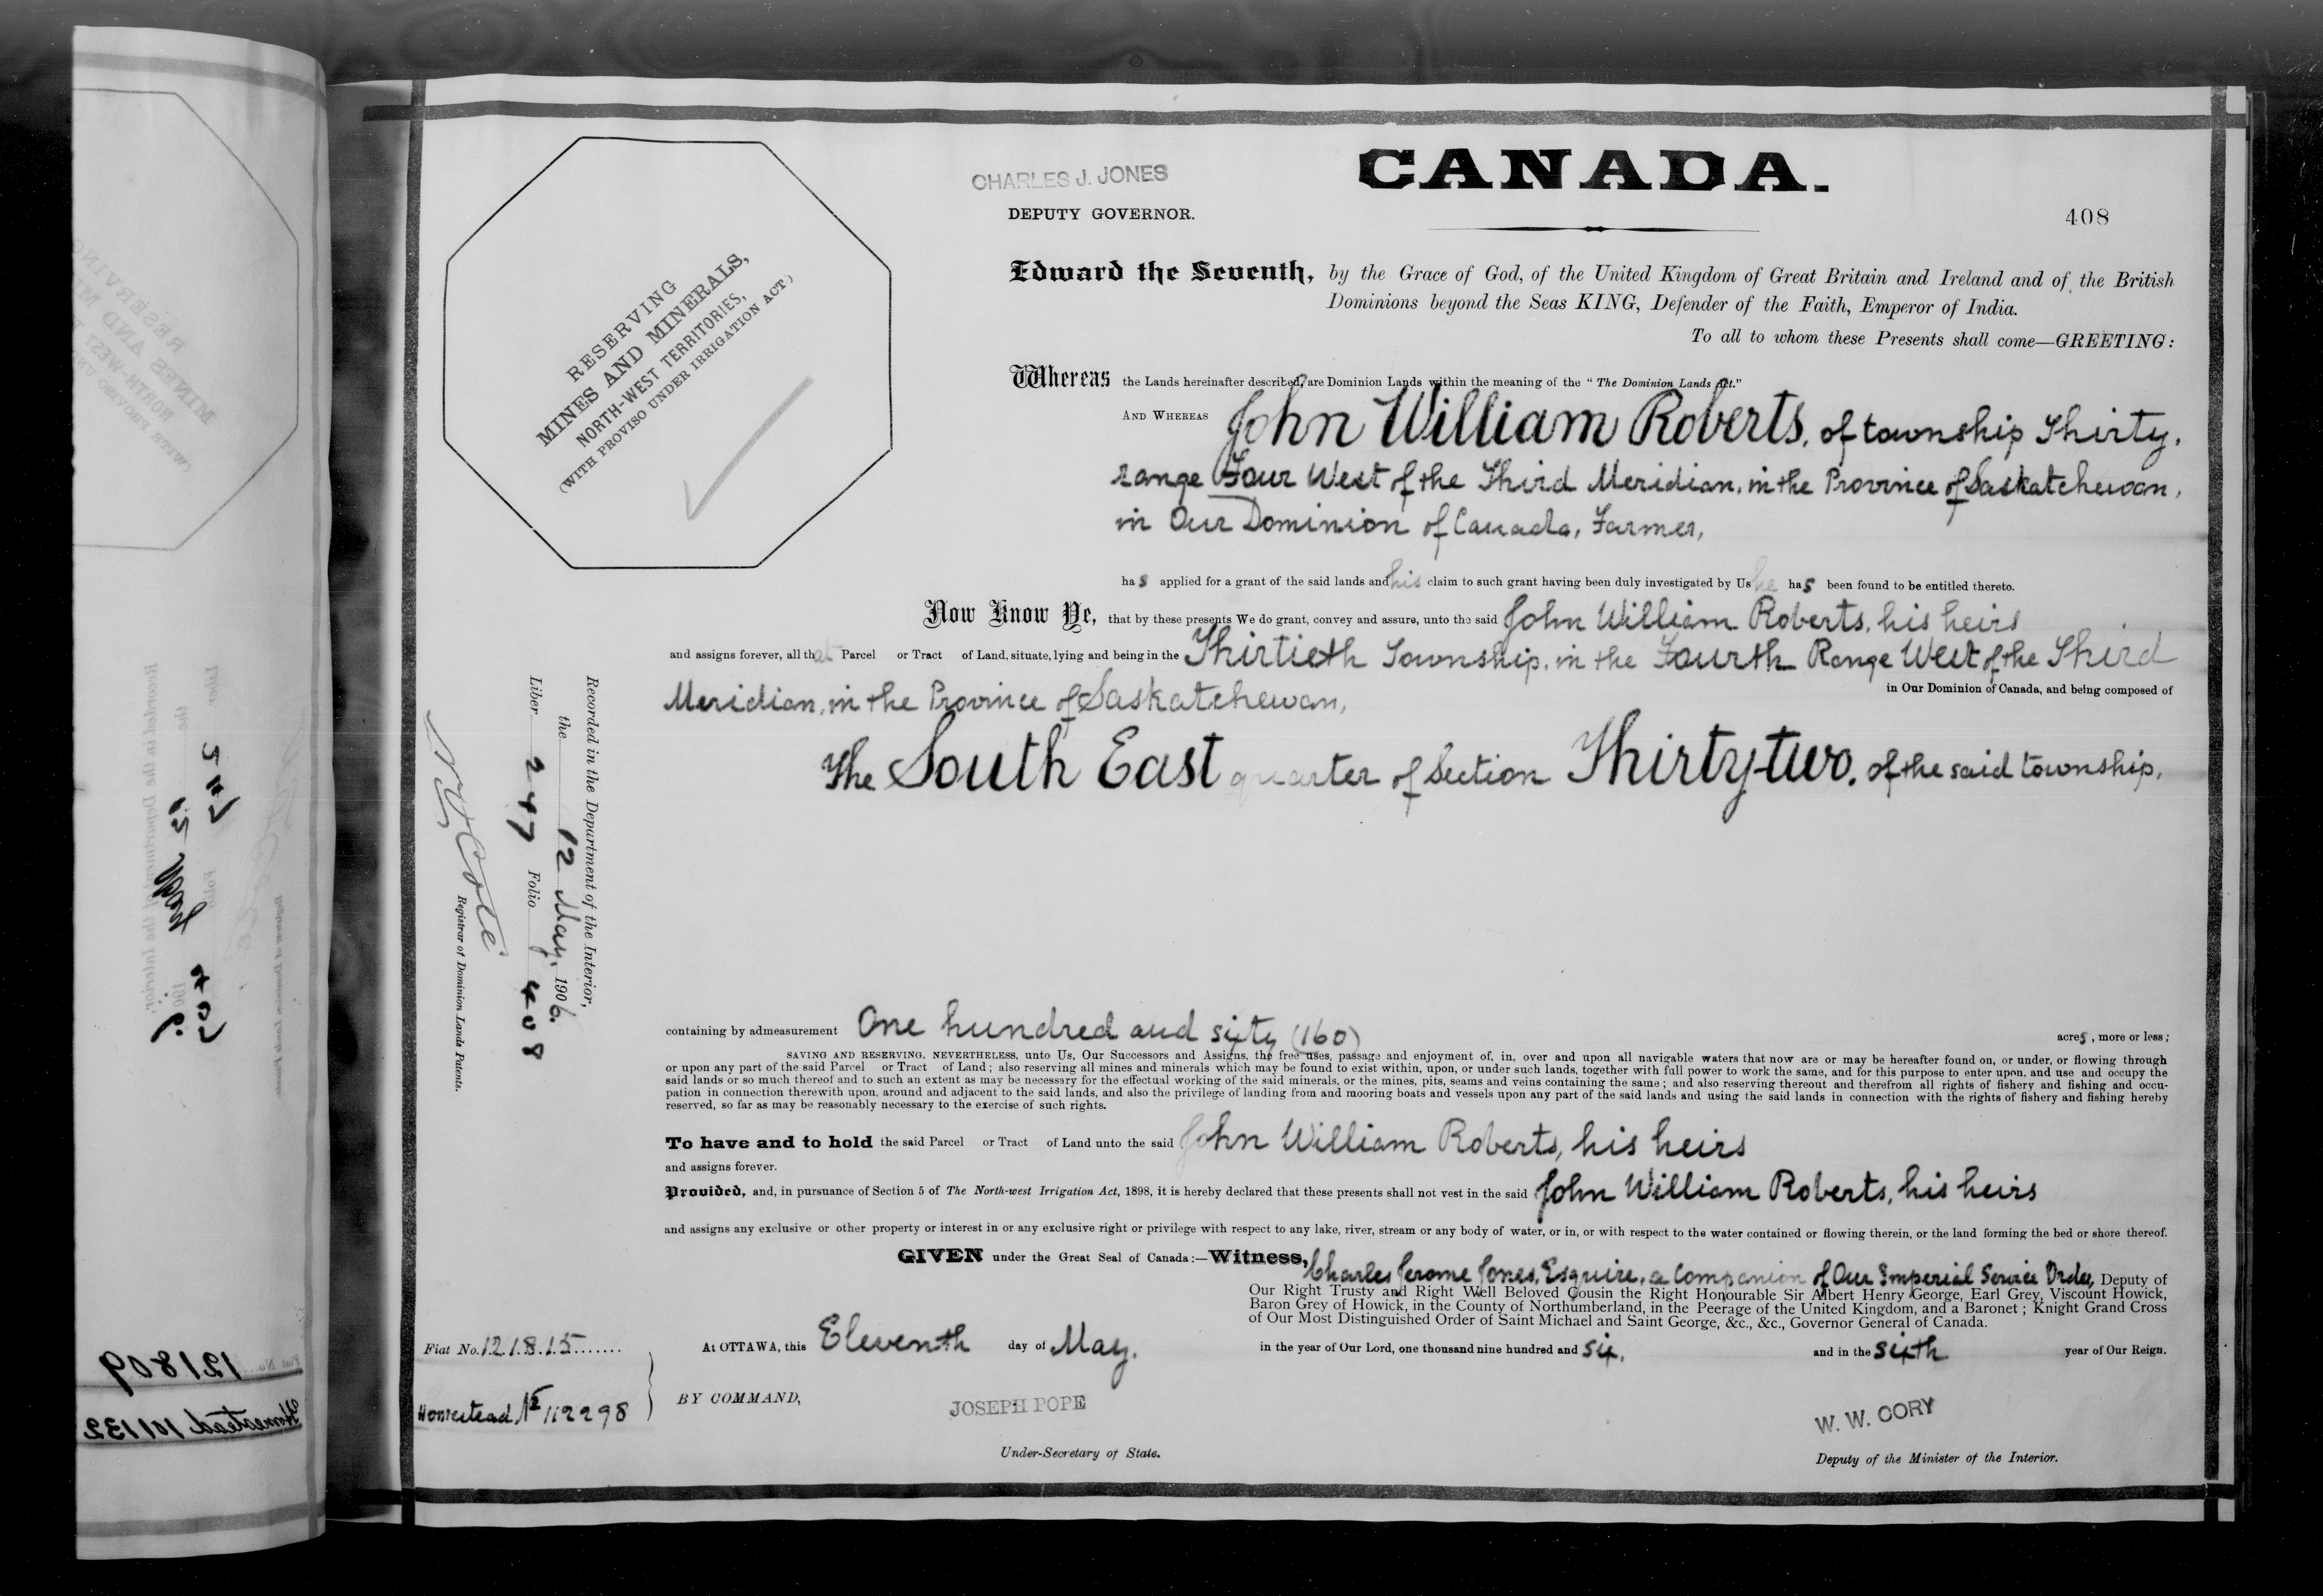 CHARLES J. JONES
DEPUTY GOVERNOR.
CANADA.
408
RESERVING
MINES AND MINERALS,
NORTH-WEST TERRITORIES,
(WITH PROVISO UNDER IRRIGATION ACT)
Edward the Seventh, by the Grace of God, of the United Kingdom of Great Britain and Ireland and of the British
Dominions beyond the Seas KING, Defender of the Faith, Emperor of India.
To all to whom these Presents shall come—GREETING:
Whereas the Lands hereinafter described, are Dominion Lands within the meaning of the "The Dominion Lands Act."
AND WHEREAS John William Roberts, of township Thirty,
range Four West of the Third Meridian, in the Province of Saskatchewan,
in Our Dominion of Canada, Farmer,
has applied for a grant of the said lands and his claim to such grant having been duly investigated by Us he has been found to be entitled thereto.
Now Know Ye, that by these presents We do grant, convey and assure, unto the said John William Roberts, his heirs
and assigns forever, all that Parcel or Tract of Land, situate, lying and being in the Thirtieth Township, in the Fourth Range West of the Third
Meridian, in the Province of Saskatchewan, in Our Dominion of Canada, and being composed of
The South East quarter of Section Thirty-two, of the said township,
containing by admeasurement One hundred and sixty (160) acres, more or less;
SAVING AND RESERVING, NEVERTHELESS, unto Us, Our Successors and Assigns, the free uses, passage and enjoyment of, in, over and upon all navigable waters that now are or may be hereafter found on, or under, or flowing through
or upon any part of the said Parcel or Tract of Land; also reserving all mines and minerals which may be found to exist within, upon, or under such lands, together with full power to work the same, and for this purpose to enter upon, and use and occupy the
said lands or so much thereof and to such an extent as may be necessary for the effectual working of the said minerals, or the mines, pits, seams and veins containing the same; and also reserving thereout and therefrom all rights of fishery and fishing and occu-
pation in connection therewith upon, around and adjacent to the said lands, and also the privilege of landing from and mooring boats and vessels upon any part of the said lands and using the said lands in connection with the rights of fishery and fishing hereby
reserved, so far as may be reasonably necessary to the exercise of such rights.
To have and to hold the said Parcel or Tract of Land unto the said John William Roberts, his heirs
and assigns forever.
Provided, and, in pursuance of Section 5 of The North-west Irrigation Act, 1898, it is hereby declared that these presents shall not vest in the said John William Roberts, his heirs
and assigns any exclusive or other property or interest in or any exclusive right or privilege with respect to any lake, river, stream or any body of water, or in, or with respect to the water contained or flowing therein, or the land forming the bed or shore thereof.
GIVEN under the Great Seal of Canada:—Witness, Charles Jerome Jones, Esquire, a Companion of Our Imperial Service Order, Deputy of
Our Right Trusty and Right Well Beloved Cousin the Right Honourable Sir Albert Henry George, Earl Grey, Viscount Howick,
Baron Grey of Howick, in the County of Northumberland, in the Peerage of the United Kingdom, and a Baronet; Knight Grand Cross
of Our Most Distinguished Order of Saint Michael and Saint George, &c., &c., Governor General of Canada.
At OTTAWA, this Eleventh day of May, in the year of Our Lord, one thousand nine hundred and six, and in the sixth year of Our Reign.
BY COMMAND,
JOSEPH POPE
Under-Secretary of State.
W. W. CORY
Deputy of the Minister of the Interior.
Fiat No. 121815
Homestead No 112298
Recorded in the Department of the Interior,
the 12 May, 1906.
Liber 247 Folio 408
N O Coté
Registrar of Dominion Lands Patents.
Fiat No. 121809
Homestead 101132